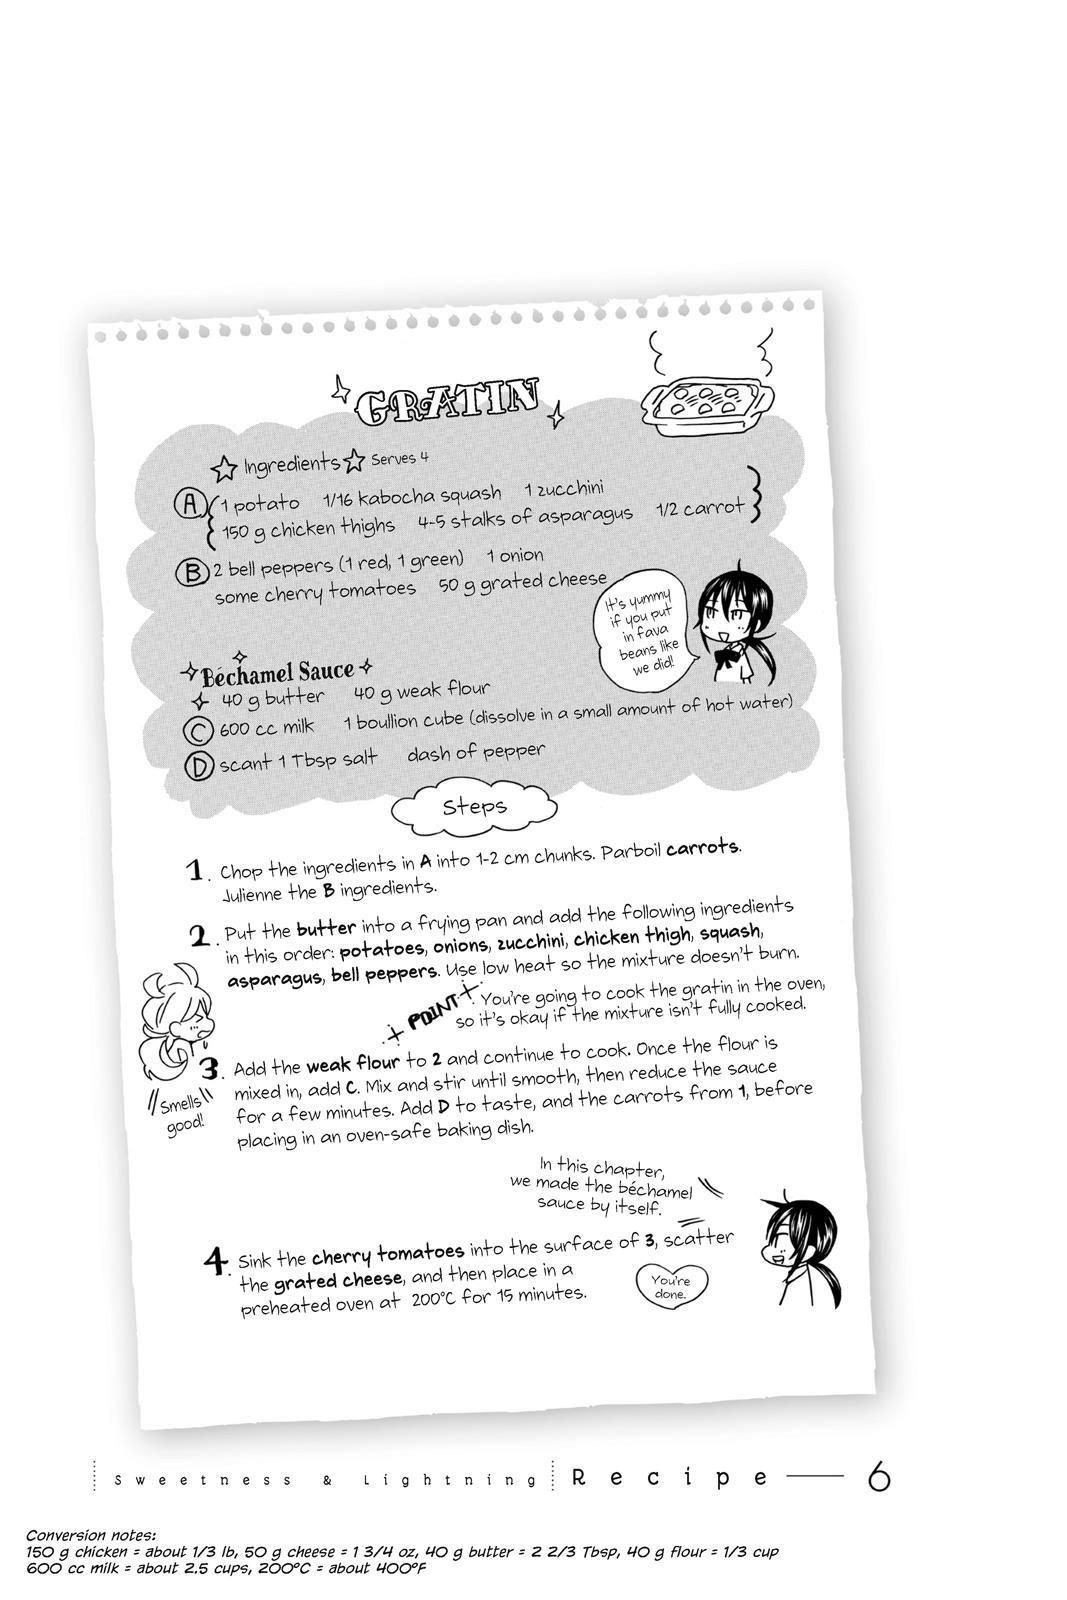 GRATIN
☆ Ingredients ☆ Serves 4
Ⓐ { 1 potato 1/16 kabocha squash 1 zucchini
150 g chicken thighs 4-5 stalks of asparagus 1/2 carrot }
Ⓑ 2 bell peppers (1 red, 1 green) 1 onion
some cherry tomatoes 50 g grated cheese
It's yummy
if you put
in fava
beans like
we did!
Béchamel Sauce
40 g butter 40 g weak flour
Ⓒ 600 cc milk 1 boullion cube (dissolve in a small amount of hot water)
Ⓓ scant 1 Tbsp salt dash of pepper
Steps
1. Chop the ingredients in A into 1-2 cm chunks. Parboil carrots.
Julienne the B ingredients.
2. Put the butter into a frying pan and add the following ingredients
in this order: potatoes, onions, zucchini, chicken thigh, squash,
asparagus, bell peppers. Use low heat so the mixture doesn't burn.
POINT You're going to cook the gratin in the oven,
so it's okay if the mixture isn't fully cooked.
3. Add the weak flour to 2 and continue to cook. Once the flour is
mixed in, add C. Mix and stir until smooth, then reduce the sauce
for a few minutes. Add D to taste, and the carrots from 1, before
placing in an oven-safe baking dish.
Smells
good!
In this chapter,
we made the béchamel
sauce by itself.
4. Sink the cherry tomatoes into the surface of 3, scatter
the grated cheese, and then place in a
preheated oven at 200°C for 15 minutes.
You're
done.
Sweetness & Lightning Recipe — 6
Conversion notes:
150 g chicken = about 1/3 lb, 50 g cheese = 1 3/4 oz, 40 g butter = 2 2/3 Tbsp, 40 g flour = 1/3 cup
600 cc milk = about 2.5 cups, 200°C = about 400°F